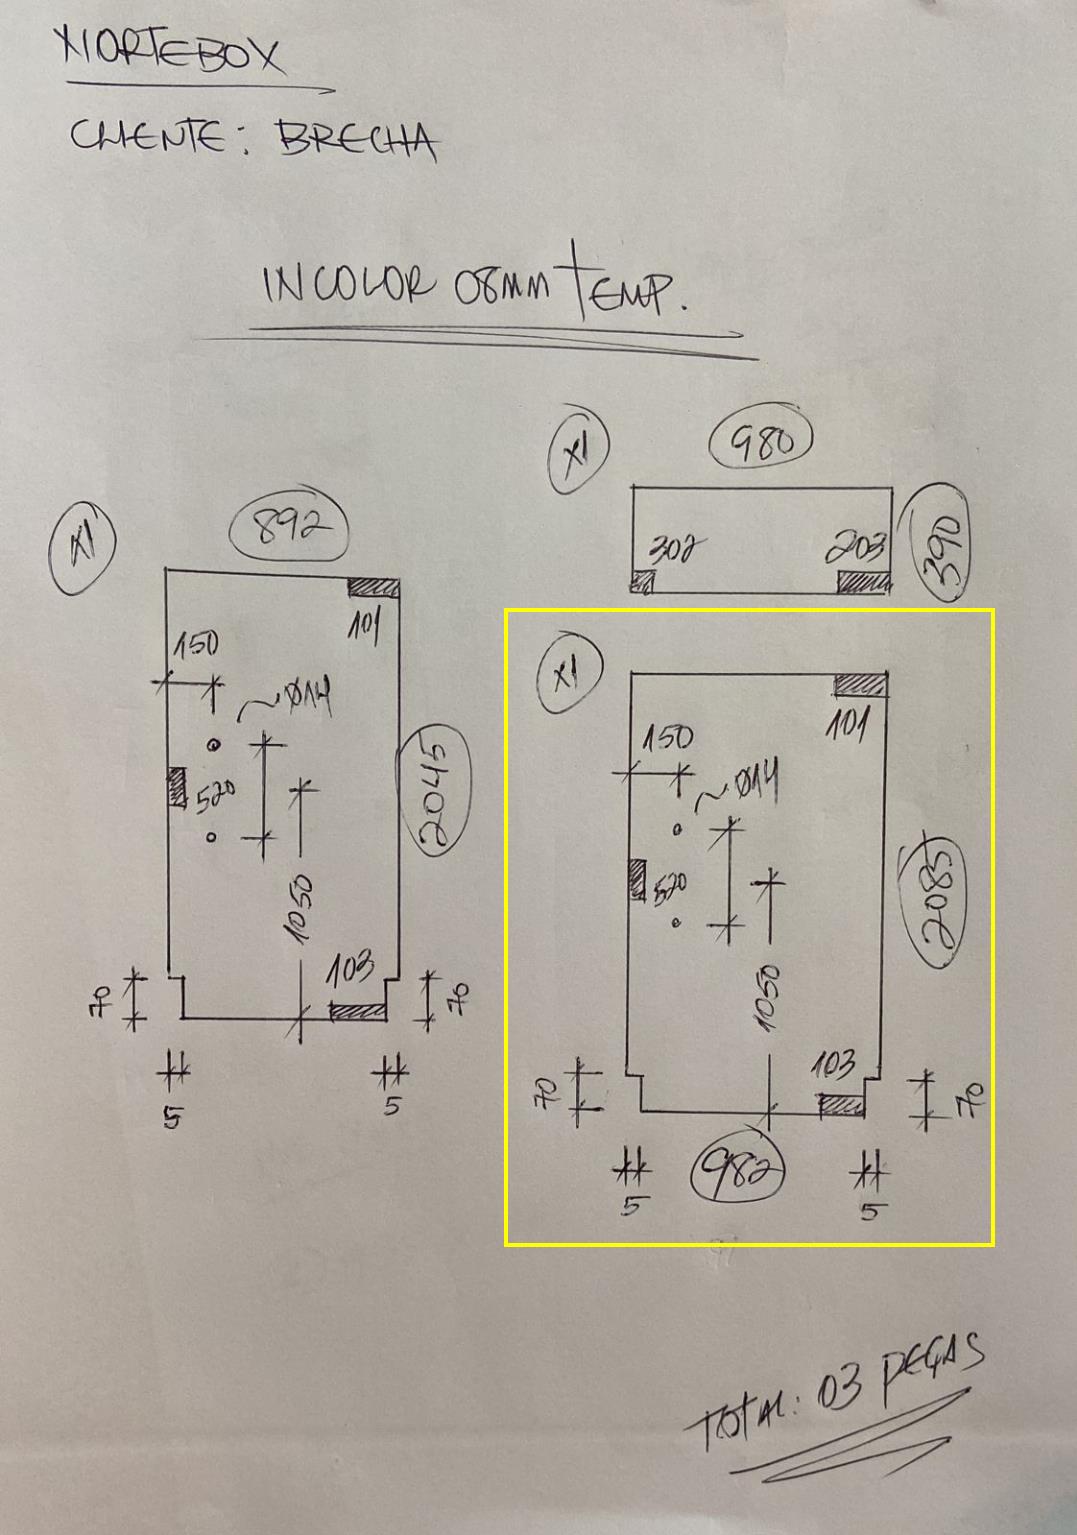 NORTEBOX
CLIENTE: BRECHA
INCOLOR 08MM TEMP.
X1
892
101
150
Ø14
520
2045
1050
103
70
70
5
5
X1
980
302
203
390
X1
101
150
Ø14
520
2085
1050
103
70
70
982
5
5
TOTAL: 03 PEÇAS